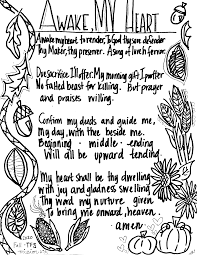 Awake, My Heart
Awake my heart to render, To God thy sure defender
Thy Maker, thy preserver. A song of love & fervor.
Due sacrifice I'll offer. My morning gift I proffer
No fatted beast for killing. But prayer
and praises willing.
Confirm my deeds and guide me,
My day, with thee beside me.
Beginning - middle - ending
Will all be upward tending
My heart shall be thy dwelling
with joy and gladness swelling
Thy word my nurture given
To bring me onward, heaven.
- amen